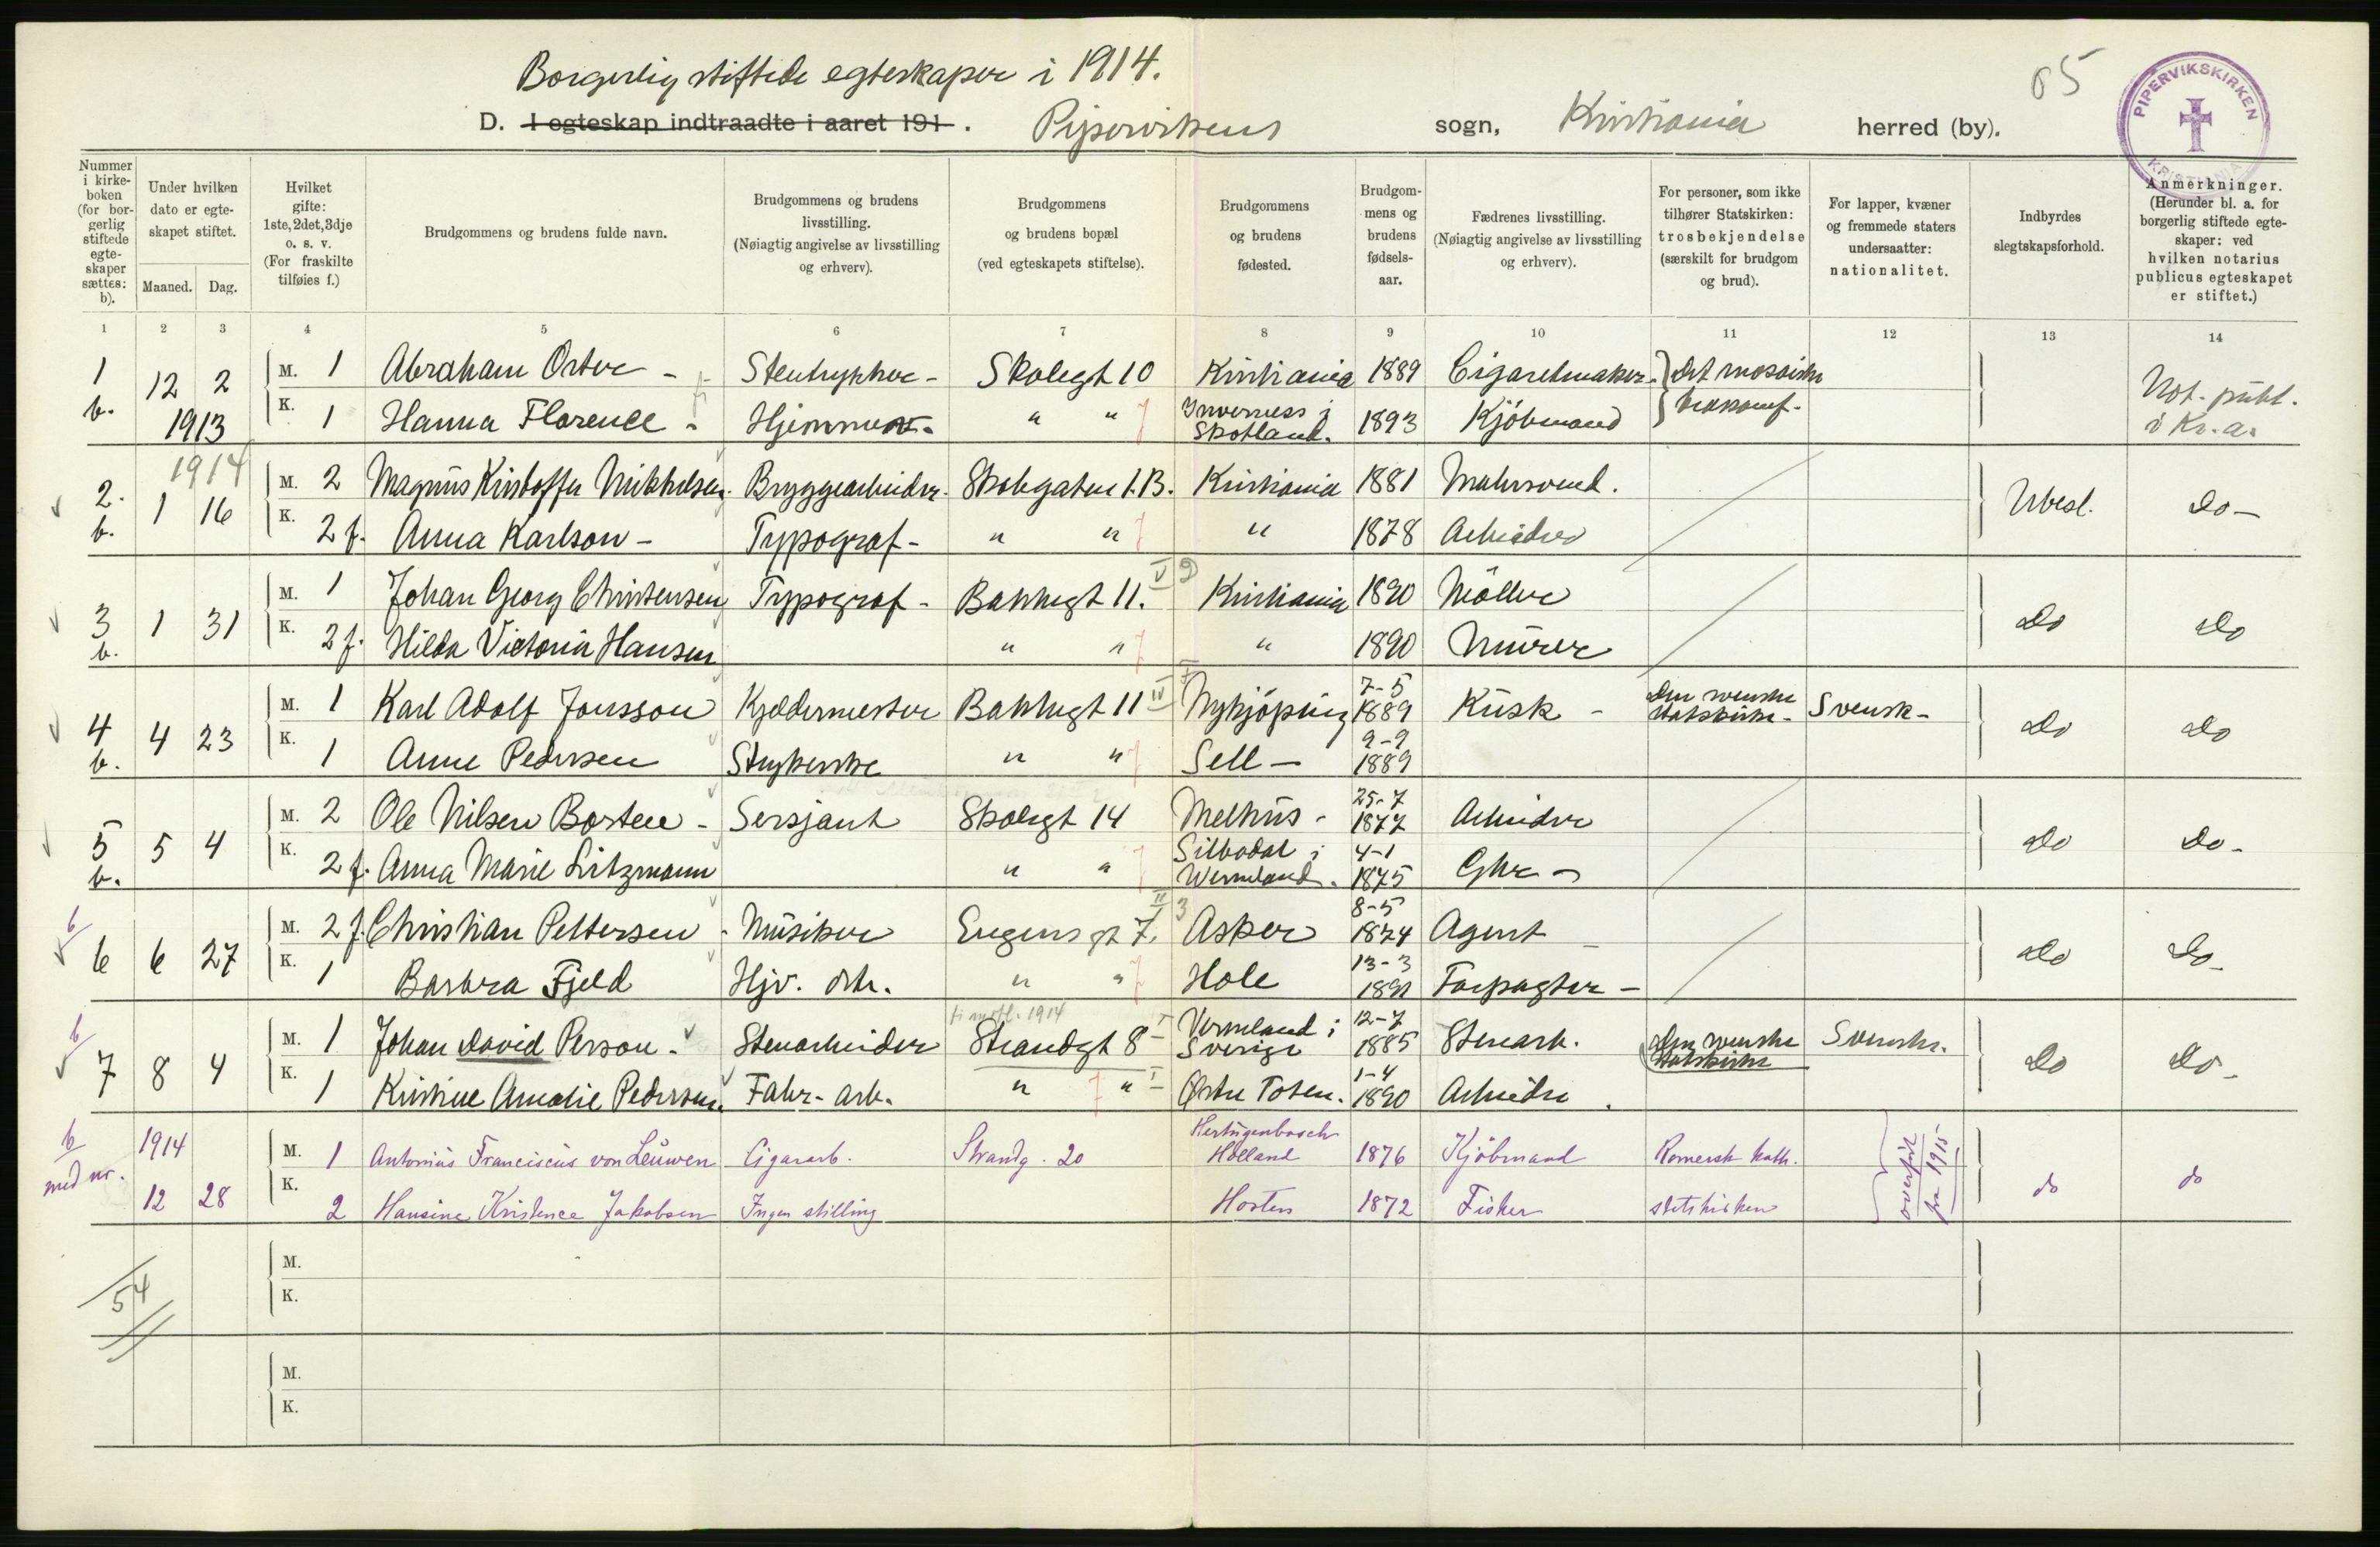 Borgerlig stiftede egteskaper i 1914.
65
PIPERVIKSKIRKEN
KRISTIANIA
D. I egteskap indtraadte i aaret 191 . Pipervikens sogn, Kristiania herred (by).
Nummer i kirkeboken (for borgerlig stiftede egteskaper sættes: b).
Under hvilken dato er egteskapet stiftet.
Maaned. Dag.
Hvilket gifte: 1ste, 2det, 3dje o. s. v. (For fraskilte tilføies f.)
Brudgommens og brudens fulde navn.
Brudgommens og brudens livsstilling. (Nøiagtig angivelse av livsstilling og erhverv).
Brudgommens og brudens bopæl (ved egteskapets stiftelse).
Brudgommens og brudens fødested.
Brudgommens og brudens fødselsaar.
Fædrenes livsstilling. (Nøiagtig angivelse av livsstilling og erhverv).
For personer, som ikke tilhører Statskirken: trosbekjendelse (særskilt for brudgom og brud).
For lapper, kvæner og fremmede staters undersaatter: nationalitet.
Indbyrdes slegtskapsforhold.
Anmerkninger. (Herunder bl. a. for borgerlig stiftede egteskaper: ved hvilken notarius publicus egteskapet er stiftet.)
1 2 3 4 5 6 7 8 9 10 11 12 13 14
1 b. 12 2 1913 M. 1 Abraham Orter - Stentrykker - Skolegt 10 Kristiania 1889 Cigaretmaker - Det mosaiske Not. publ. i Kr.a.
K. 1 Hanna Florence - Hjemme - " " Inverness i Skotland. 1893 Kjöbmand
1914
2. b. 1 16 M. 2 Magnus Kristoffer Mikkelsen Bryggearbeider - Skolegaten 1.B. Kristiania 1881 Malersvend. Ubesl. do -
K. 2 f. Anna Karlson - Typograf - " " " 1878 Arbeider
3 b. 1 31 M. 1 Johan Georg Christensen Typograf - Bakkegt 11. V Kristiania 1890 Möller do do
K. 2 f. Hilda Victoria Hansen " " " 1890 Murer
4 b. 4 23 M. 1 Karl Adolf Jonsson Kjeldermester Bakkegt 11 IV Nykjöping 7-5 1889 Kusk - Den svenske Statskirke - Svensk - do do
K. 1 Anne Pedersen Strykerske " " Sell - 9-9 1889
5 b. 5 4 M. 2 Ole Nilsen Borten - Sersjant Skolegt 14 Melhus - 25-7 1877 Arbeider do do -
K. 2 f. Anna Marie Litzmann " " Silbodal i Wermland. 4-1 1875 Ghr -
b 6 6 27 M. 2 f. Christian Pettersen - Musiker Eugens gt 7. II Asker 8-5 1874 Agent - do do -
K. 1 Barbra Fjeld Hjv. " " Hole 13-3 1891 Forpagter -
b 7 8 4 M. 1 Johan David Person - Stenarbeider Strandgt 8 I Vermland i Sverige 12-7 1885 Stenarb. Den svenske Statskirke Svensk. do do -
K. 1 Kristine Amalie Pedersen. Fabr. arb. " " I Østre Toten. 1-4 1890 Arbeider
b med nr. 1914 12 28 M. 1 Antonius Franciscus von Leuwen Cigararb. Strandg. 20 Hertugenbosch Holland 1876 Kjöbmand Romersk kath. overført fra 1915 do do
K. 2 Hansine Kristence Jakobsen Ingen stilling Horten 1872 Fisker statskirken
54
M.
K.
M.
K.